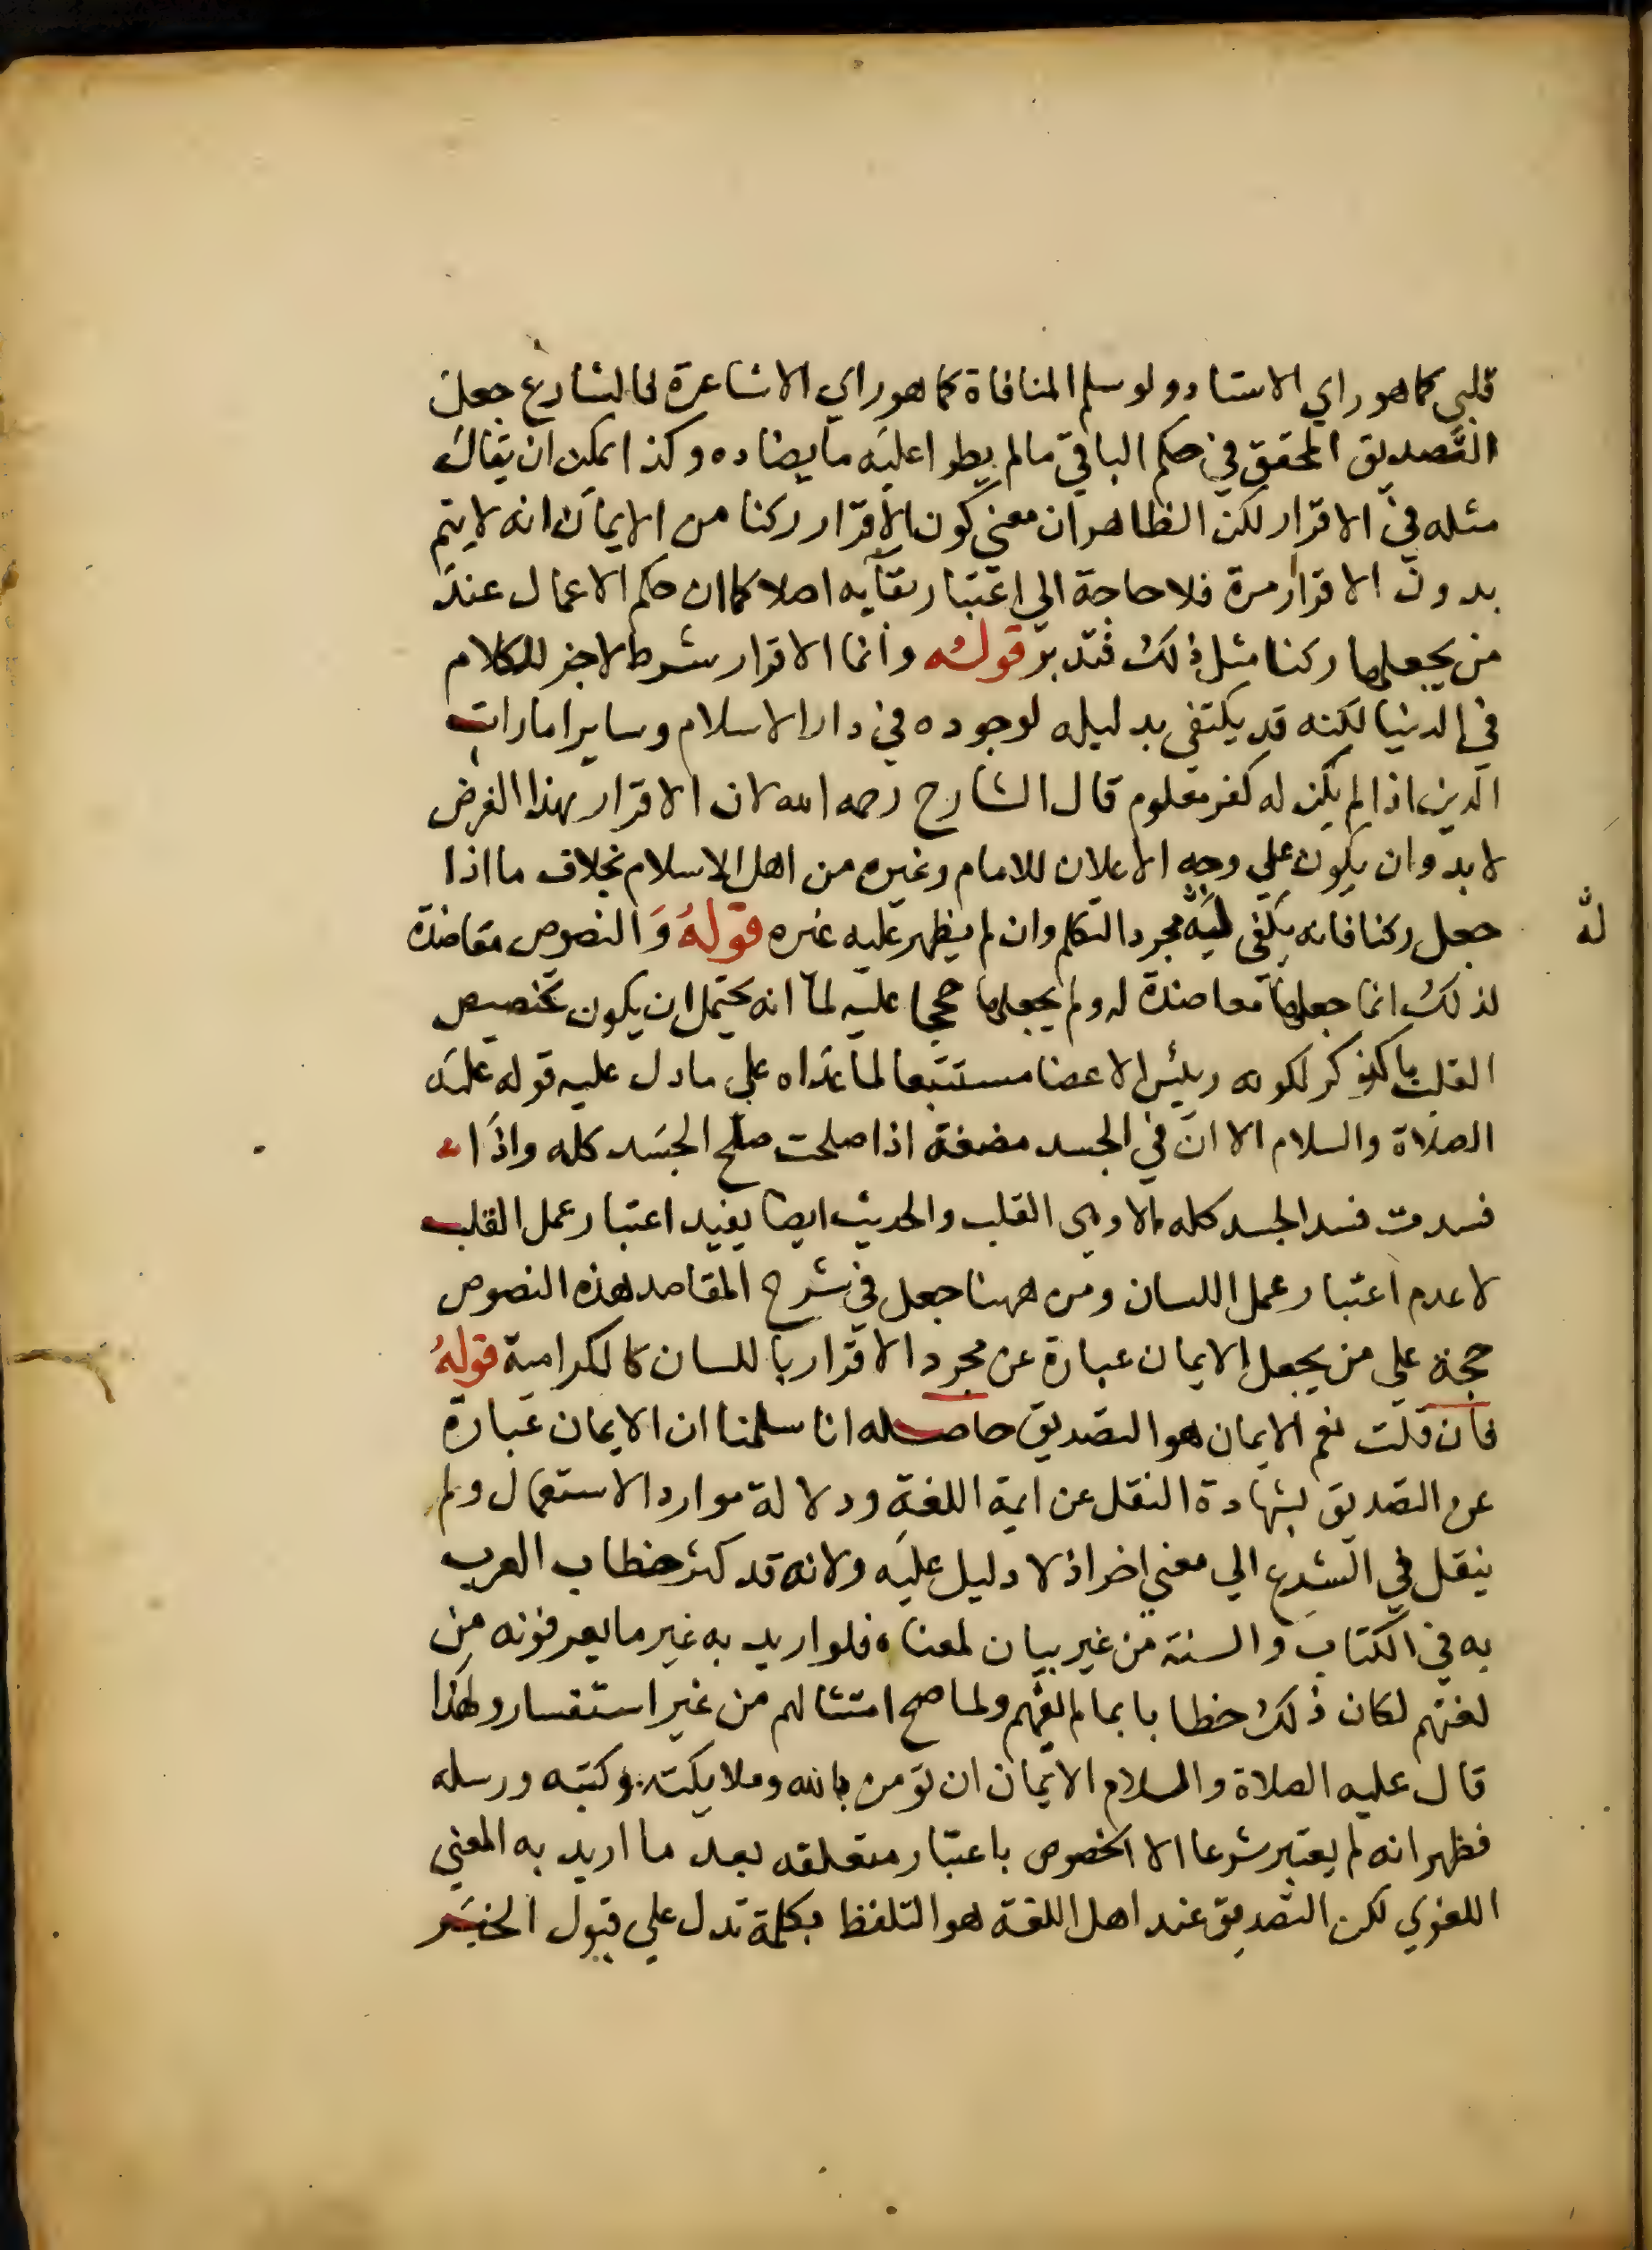 قلبي كما هو راي الاستاد ولو سلم المنافاة كما هو راي الاشاعرة فالشارع جعل
التصديق المحقق في حكم الباقي ما لم يطرا عليه ما يضاده وكذا يمكن ان يقال
مثله في الاقرار لكن الظاهر ان معني كون الاقرار ركنا من الايمان انه لا يتم
بدون الاقرار مرة فلا حاجة الي اعتبار بقآيه اصلا كما ان حكم الاعمال عند
من يجعلها ركنا مثل ذلك فتدبر قوله وانما الاقرار شرط لاجز للكلام
في الدنيا لكنه قد يكتفي بدليله لوجوده في دار الاسلام وساير امارات
الدين اذا لم يكن له كفر معلوم قال الشارح رحمه الله لان الاقرار بهذا الغرض
لا بد وان يكون علي وجه الاعلان للامام وغيره من اهل الاسلام بخلاف ما اذا
جعل ركنا فانه يكفي له مجرد التكلم وان لم يظهر عليه غيره قوله والنصوص معاضدة
له
لذلك انما جعلها معاضدة له ولم يجعلها حججا عليه لما انه يحتمل ان يكون تخصيص
القلب بالذكر لكونه رييس الاعضا مستتبعا لما عداه علي ما دل عليه قوله عليه
الصلاة والسلام الا ان في الجسد مضغة اذا صلحت صلح الجسد كله واذا
فسدت فسد الجسد كله الا وهي القلب والحديث ايضا يفيد اعتبار عمل القلب
لا عدم اعتبار عمل اللسان ومن ههنا جعل في شرح المقاصد هذه النصوص
حجة علي من يجعل الايمان عبارة عن مجرد الاقرار باللسان كالكرامية قوله
فان قلت نعم الايمان هو التصديق حاصله انا سلمنا ان الايمان عبارة
عن التصديق بشهادة النقل عن ايمة اللغة ودلالة موارد الاستعمال ولم
ينقل في الشرع الي معني اخر اذ لا دليل عليه ولانه قد كثر خطاب العرب
به في الكتاب والسنة من غير بيان لمعناه فلو اريد به غير ما يعرفونه من
لغتهم لكان ذلك خطابا بما لم يفهم ولما صح امتثالهم من غير استفسار ولهذا
قال عليه الصلاة والسلام الايمان ان تومن بالله وملايكته وكتبه ورسله
فظهر انه لم يعتبر شرعا الا الخصوص باعتبار متعلقه بعد ما اريد به المعني
اللغوي لكن التصديق عند اهل اللغة هو التلفظ بكلمة تدل علي قبول الخبر